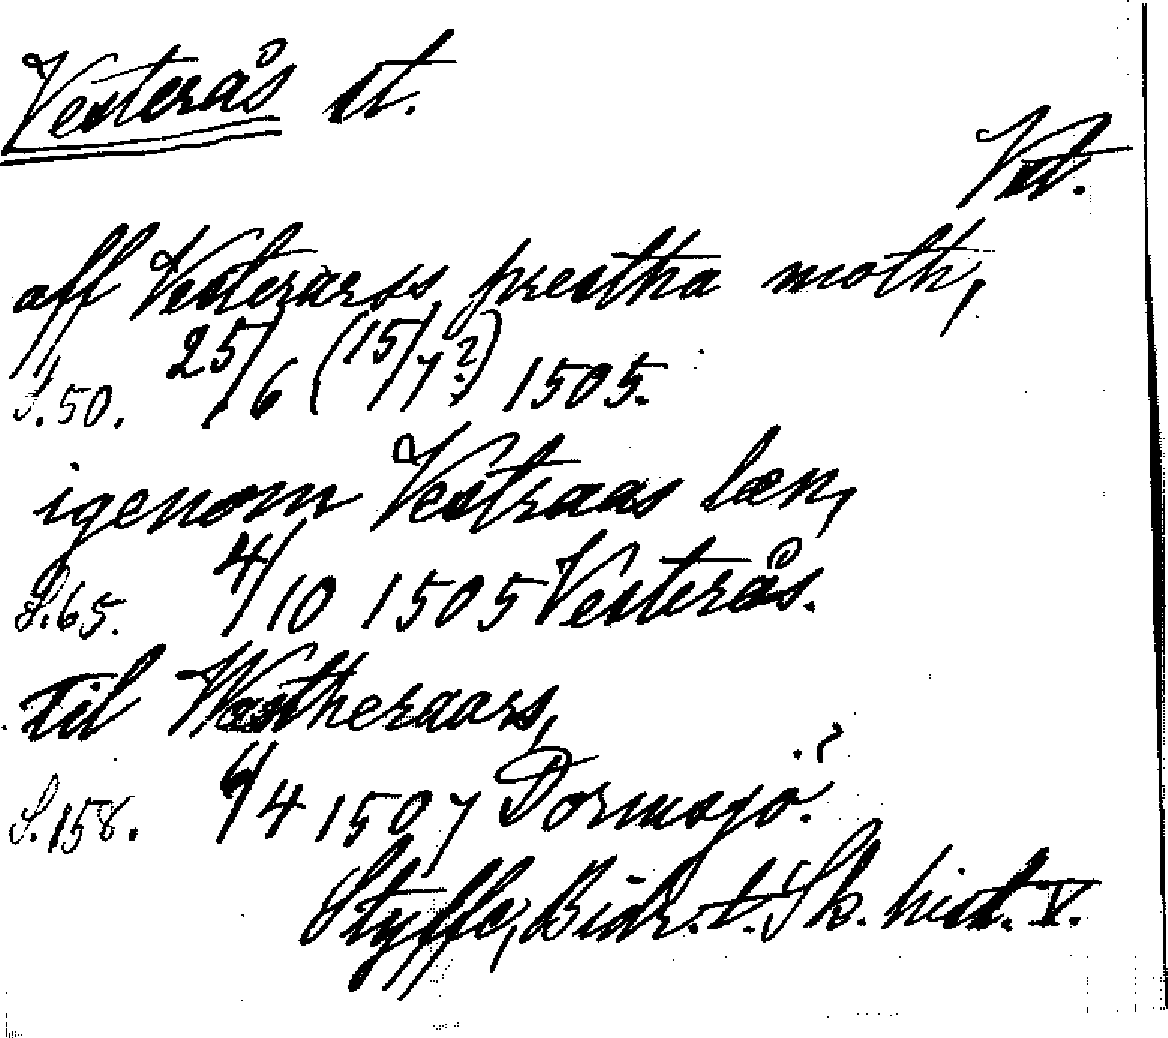 Vesterås st.
Vst.
aff Vesterarss prestha moth,
S. 50. 25/6 (15/7?) 1505.
igenom Vestraas læn,
S. 65. 4/10 1505 Vesterås.
til Westheraars,
S. 158. 6/4 1507 Dormsjö.?
Styffe, Bidr. t. Sk. hist. V.